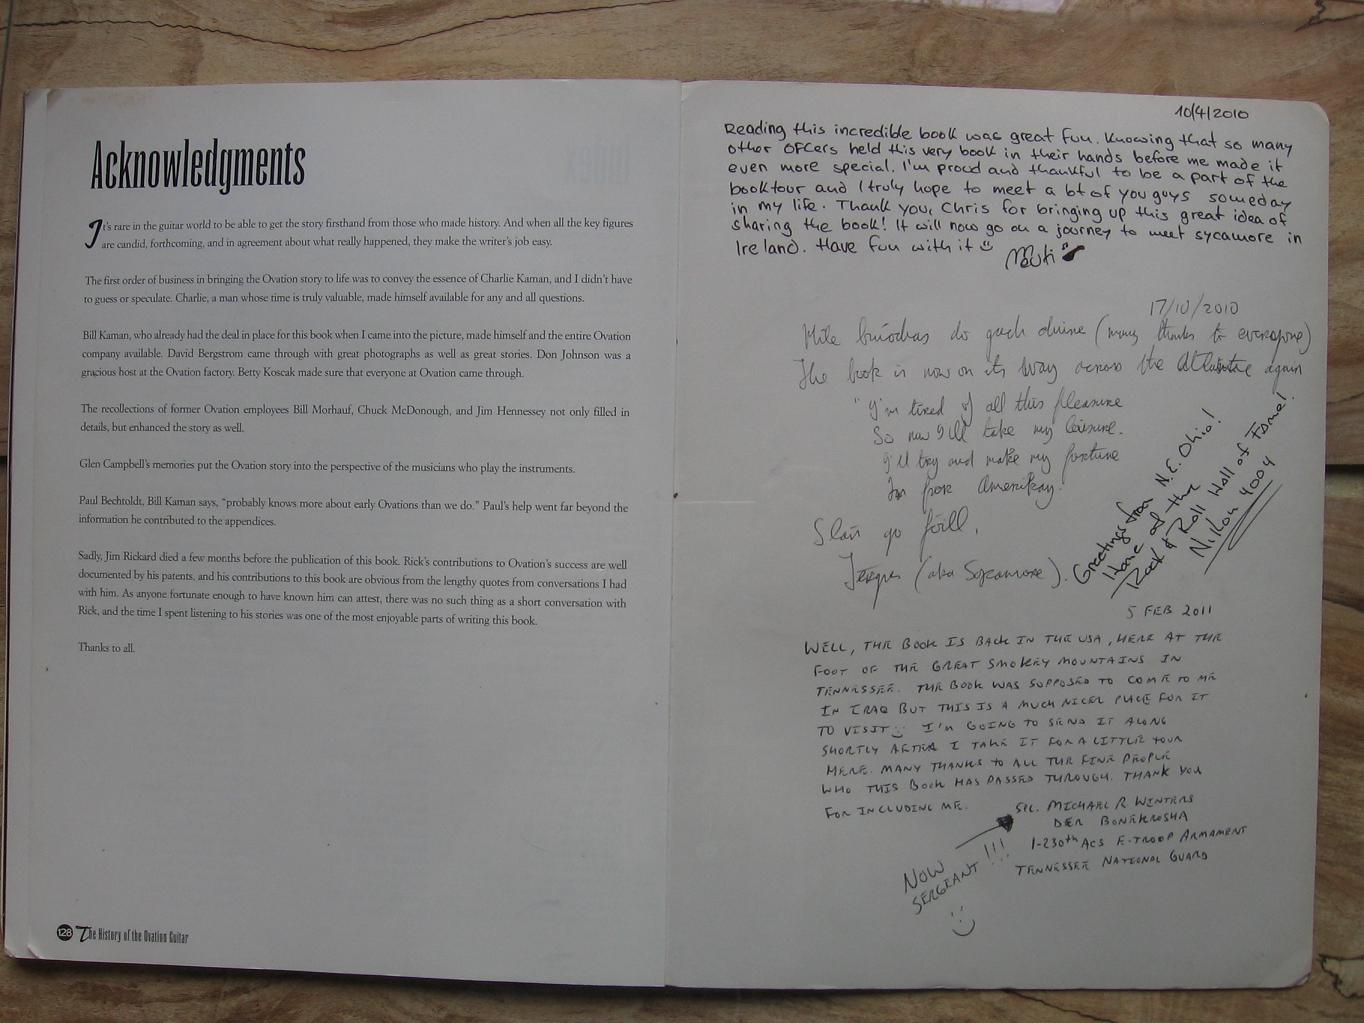 Acknowledgments
It's rare in the guitar world to be able to get the story firsthand from those who made history. And when all the key figures
are candid, forthcoming, and in agreement about what really happened, they make the writer's job easy.
The first order of business in bringing the Ovation story to life was to convey the essence of Charlie Kaman, and I didn't have
to guess or speculate. Charlie, a man whose time is truly valuable, made himself available for any and all questions.
Bill Kaman, who already had the deal in place for this book when I came into the picture, made himself and the entire Ovation
company available. David Bergstrom came through with great photographs as well as great stories. Don Johnson was a
gracious host at the Ovation factory. Betty Koscak made sure that everyone at Ovation came through.
The recollections of former Ovation employees Bill Morhauf, Chuck McDonough, and Jim Hennessey not only filled in
details, but enhanced the story as well.
Glen Campbell's memories put the Ovation story into the perspective of the musicians who play the instruments.
Paul Bechtoldt, Bill Kaman says, "probably knows more about early Ovations than we do." Paul's help went far beyond the
information he contributed to the appendices.
Sadly, Jim Rickard died a few months before the publication of this book. Rick's contributions to Ovation's success are well
documented by his patents, and his contributions to this book are obvious from the lengthy quotes from conversations I had
with him. As anyone fortunate enough to have known him can attest, there was no such thing as a short conversation with
Rick, and the time I spent listening to his stories was one of the most enjoyable parts of writing this book.
Thanks to all.
128 The History of the Ovation Guitar
10/4/2010
Reading this incredible book was great fun. Knowing that so many
other OFCers held this very book in their hands before me made it
even more special. I'm proud and thankful to be a part of the
booktour and I truly hope to meet a lot of you guys someday
in my life. Thank you, Chris for bringing up this great idea of
sharing the book! It will now go on a journey to meet sycamore in
Ireland. Have fun with it
17/10/2010
Míle buíochas do gach duine (many thanks to everyone)
The book is now on its way across the Atlantic again
"I'm tired of all this pleasure
So now I'll take my leisure.
I'll try and make my fortune
In for Amerikay.
Slán go fóill,
(aka Sycamore).
Greetings from N.E. Ohio!
Home of the
Rock & Roll Hall of Fame!
Nikon 4004
5 FEB 2011
WELL, THE BOOK IS BACK IN THE USA, HERE AT THE
FOOT OF THE GREAT SMOKEY MOUNTAINS IN
TENNESSEE. THE BOOK WAS SUPPOSED TO COME TO ME
IN IRAQ BUT THIS IS A MUCH NICER PLACE FOR IT
TO VISIT I'M GOING TO SEND IT ALONG
SHORTLY AFTER I TAKE IT FOR A LITTLE TOUR
HERE. MANY THANKS TO ALL THE FINE PEOPLE
WHO THIS BOOK HAS PASSED THROUGH. THANK YOU
FOR INCLUDING ME.
SPC. MICHAEL R. WINTERS
DER BONEKROSHA
1-230th ACS E-TROOP ARMAMENT
TENNESSEE NATIONAL GUARD
NOW
SERGEANT!!!